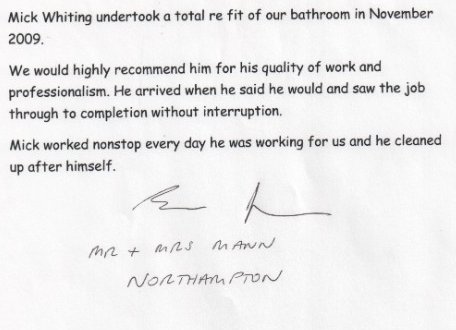 Mick Whiting undertook a total re fit of our bathroom in November
2009.
We would highly recommend him for his quality of work and
professionalism. He arrived when he said he would and saw the job
through to completion without interruption.
Mick worked nonstop every day he was working for us and he cleaned
up after himself.
MR + MRS MANN
NORTHAMPTON